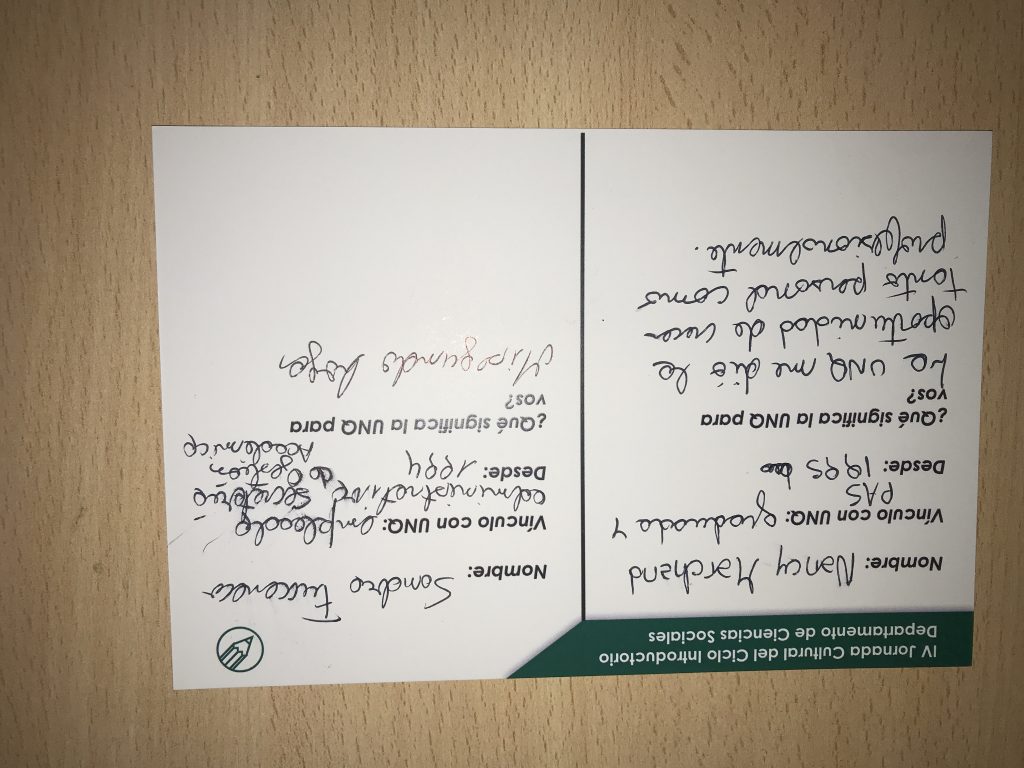 IV Jornada Cultural del Ciclo Introductorio
Departamento de Ciencias Sociales
Nombre: Nancy Marchand
Vínculo con UNQ: graduada y
PAS
Desde: 1995
¿Qué significa la UNQ para
vos?
La UNQ me dió la
oportunidad de crecer
tanto personal como
profesionalmente.
Nombre: Sandra
Vínculo con UNQ: empleada
administrativa Secretaría
Desde: 1994 de gestión
Académica
¿Qué significa la UNQ para
vos?
Mi segundo hogar